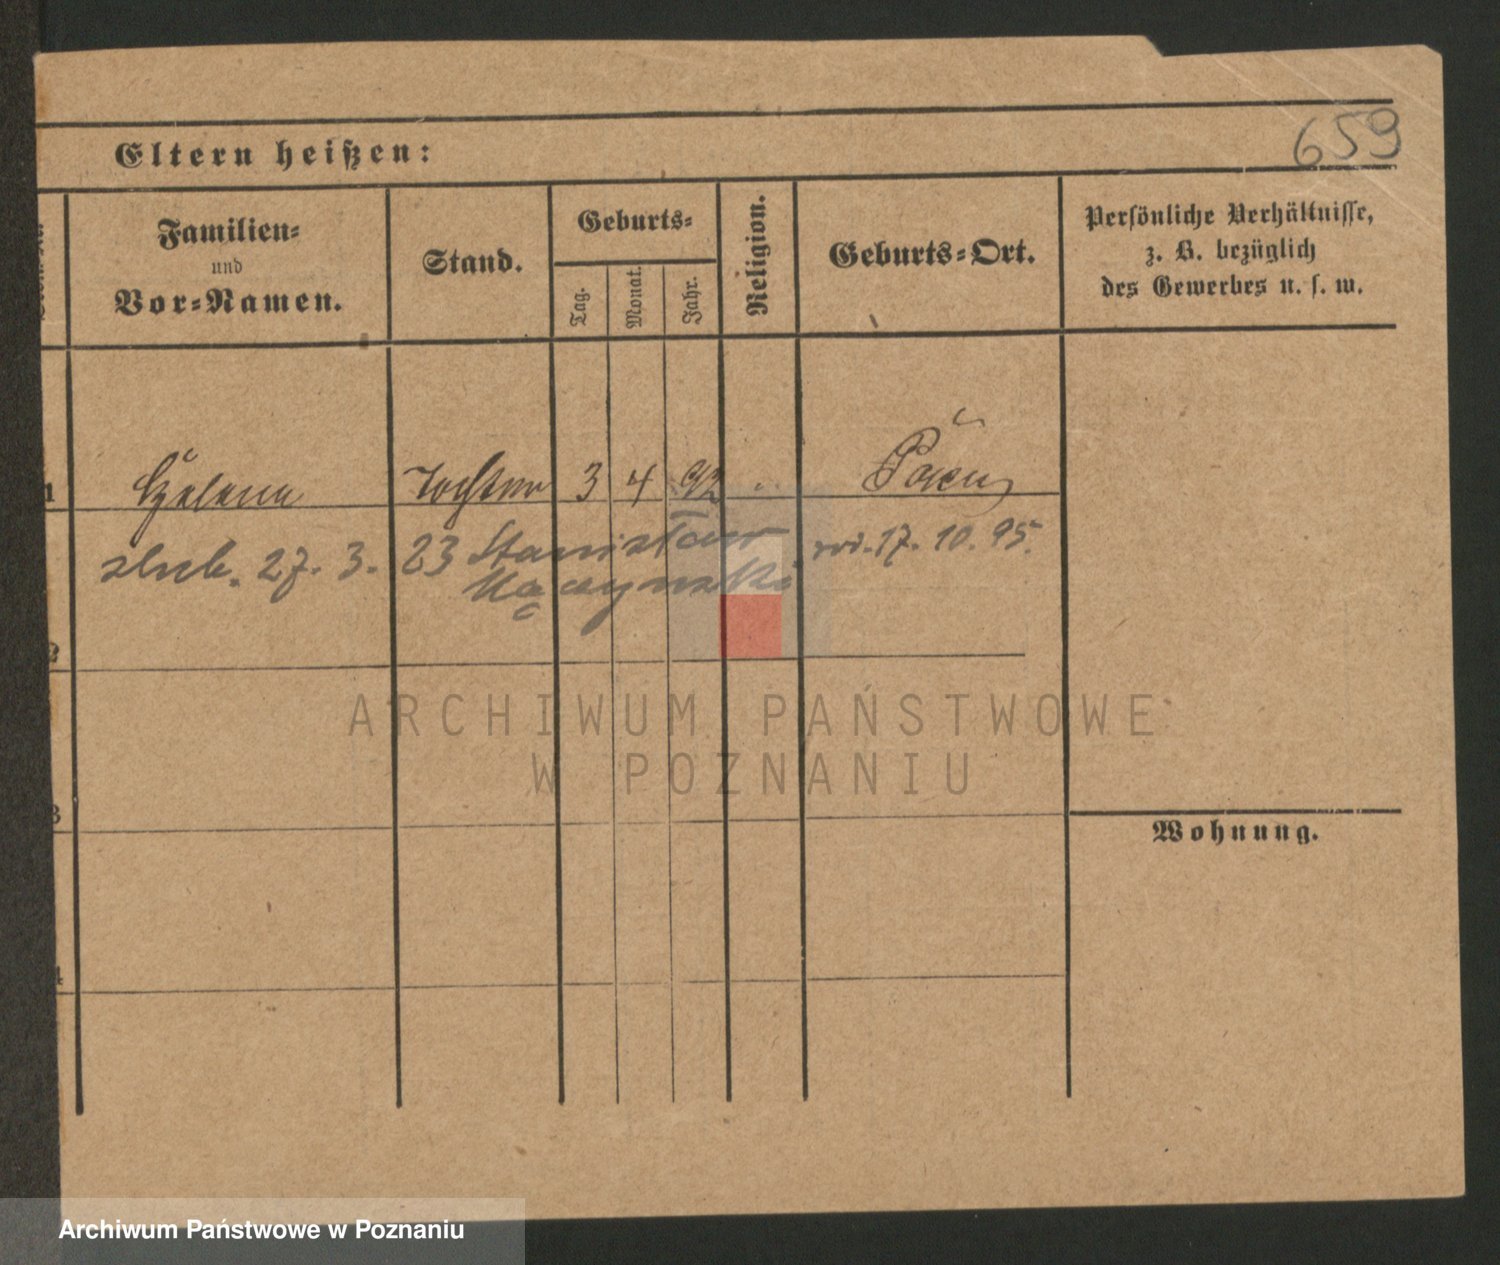 659
Eltern heißen:
Familien-
und
Vor-Namen.
Stand.
Geburts-
Tag.
Monat.
Jahr.
Religion.
Geburts-Ort.
Persönliche Verhältnisse,
z. B. bezüglich
des Gewerbes u. s. w.
1 Helena Tochter 3 4 92 Posen
ślub. 27. 3. 23 Stanisław ur. 17. 10. 95.
2
3
Wohnung.
4
ARCHIWUM PAŃSTWOWE
W POZNANIU
Archiwum Państwowe w Poznaniu